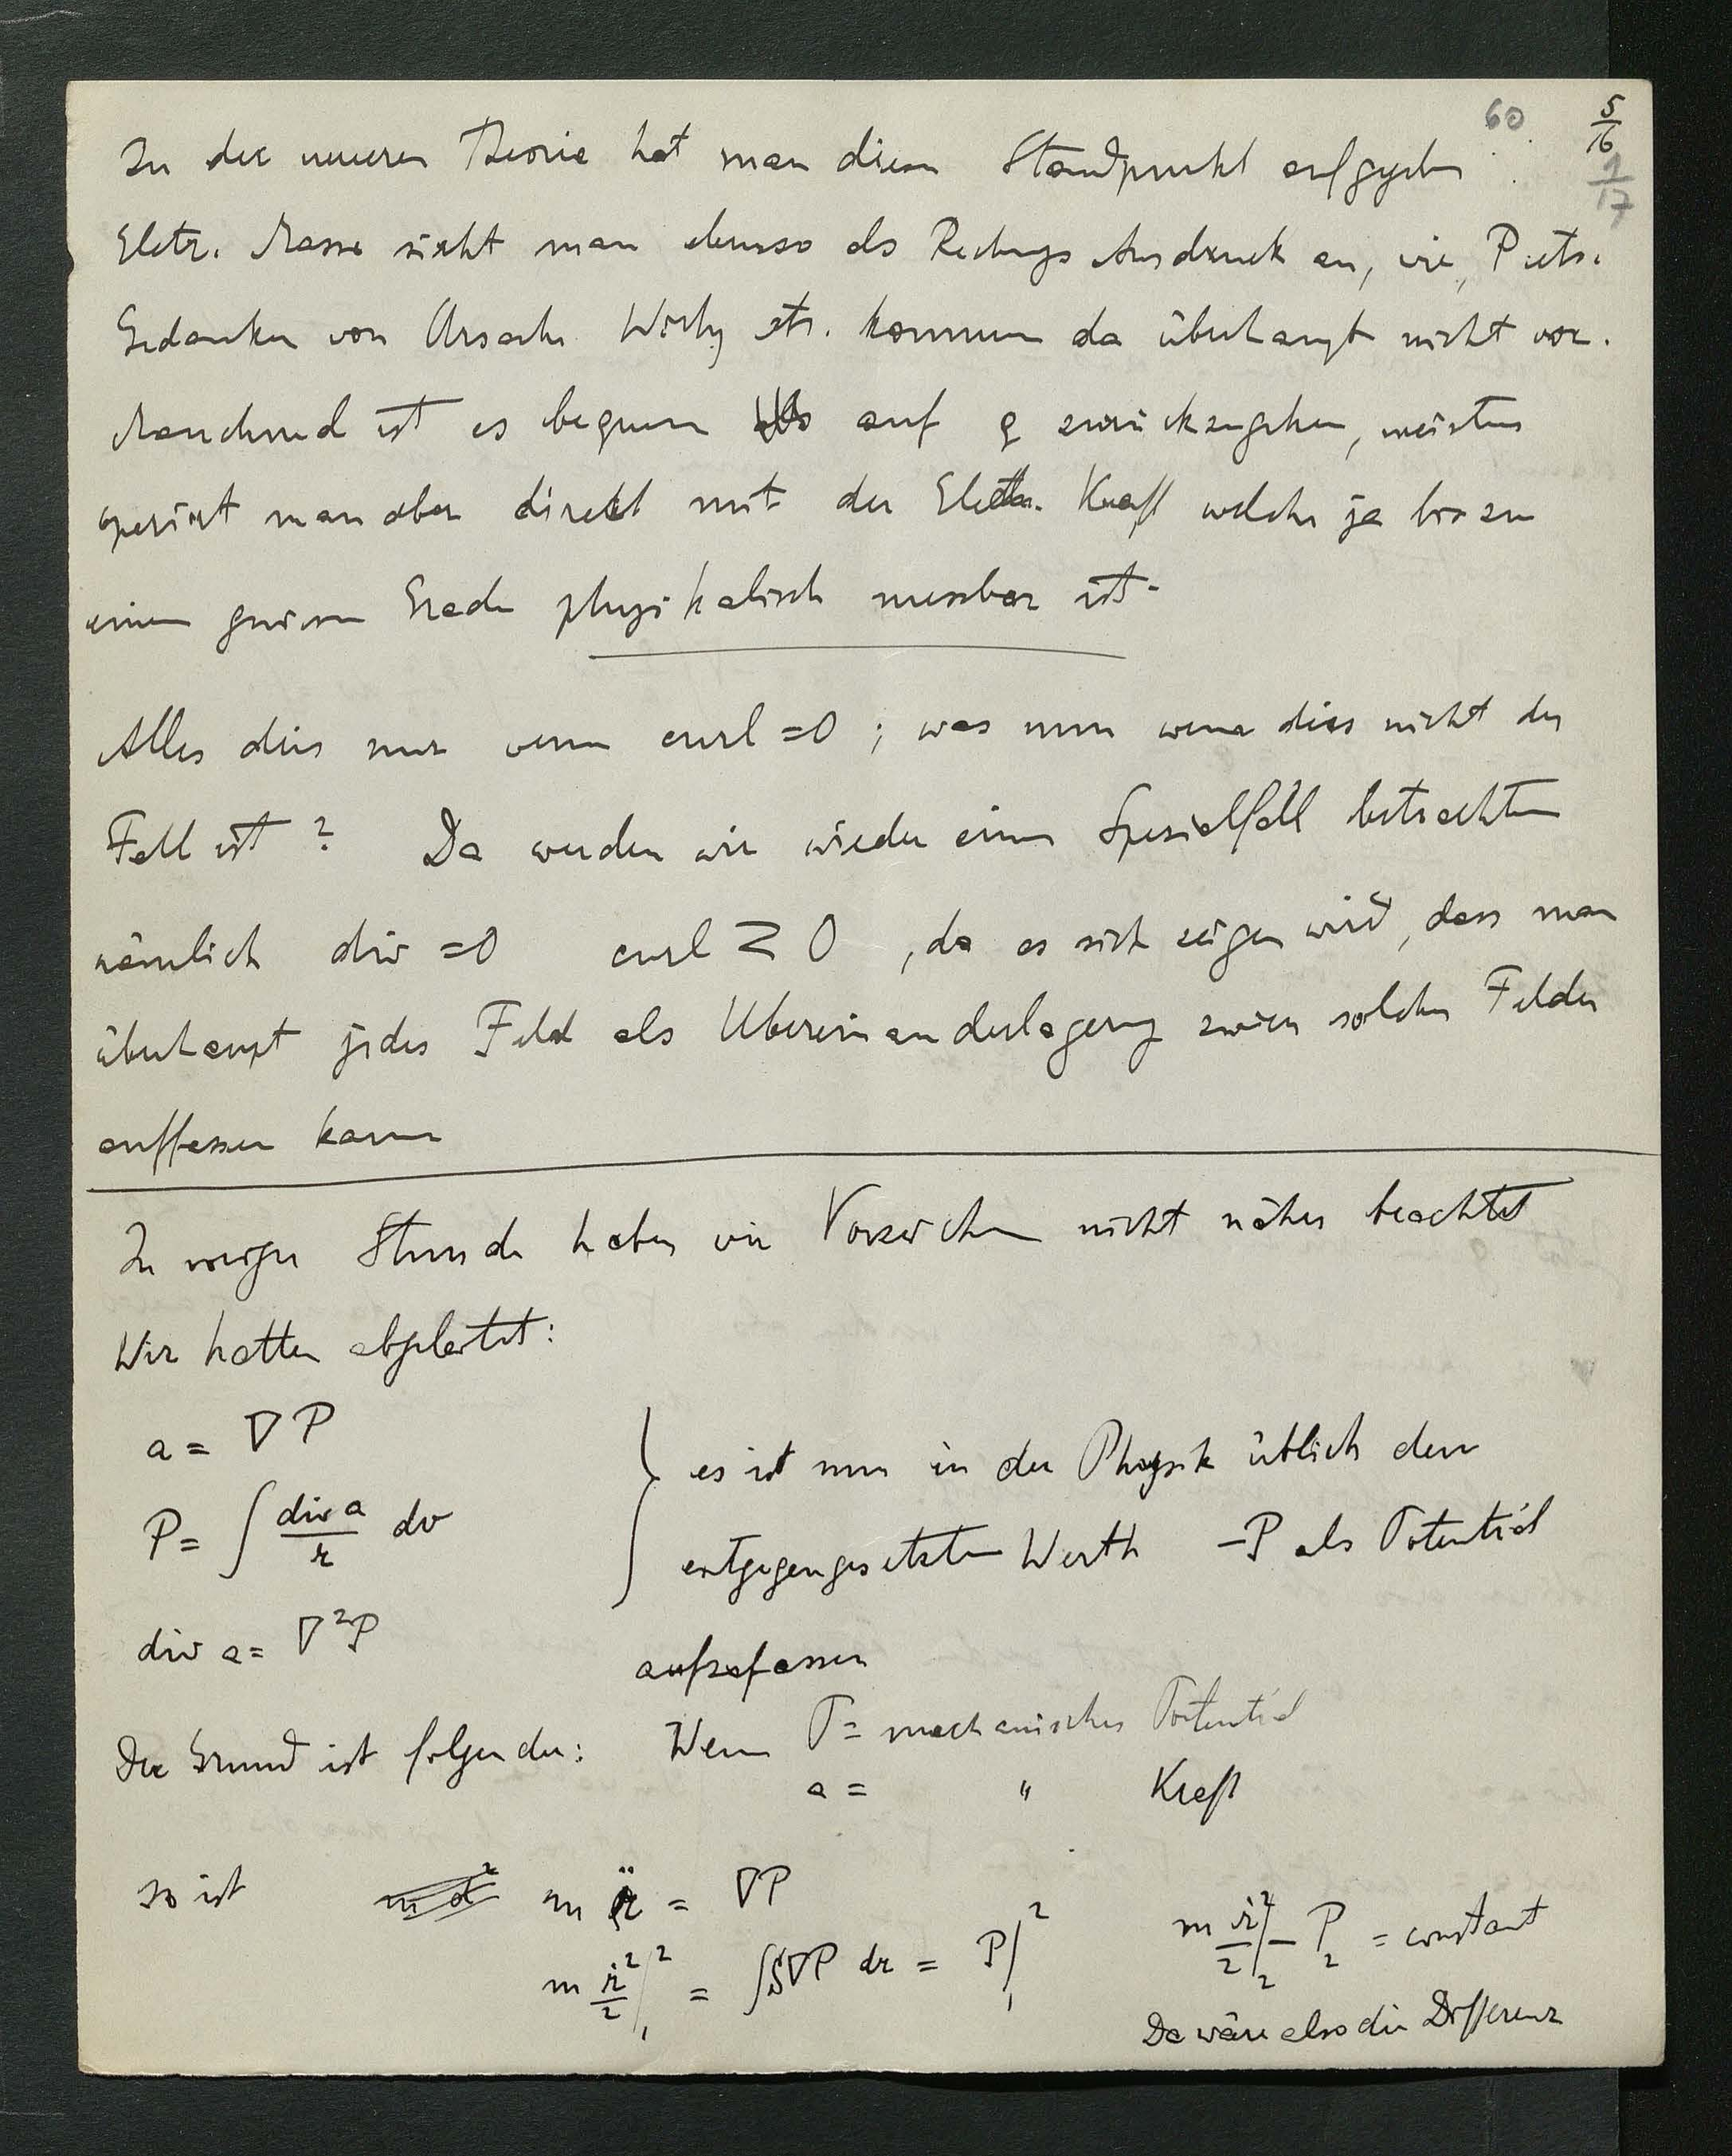 60
5/16
1/17
In der neueren Theorie hat man diesen Standpunkt aufgegeben.
Elctr. Masse sieht man ebenso als Rechnugs Ausdruck an, wie P etc.
Gedanken von Ursache Wirkg etc. kommen da überhaupt nicht vor.
Manchmal ist es bequem auf ϱ zurückzugehen, meistens
operirt man aber direkt mit der Electr. Kraft welche ja bis zu
einem gewissen Grade physikalisch messbar ist.
Alles dies nur wenn curl = 0 ; was nun wenn dies nicht der
Fall ist ? Da werden wir wieder einen Spezialfall betrachten
nämlich div = 0 curl ≷ 0 , da es sich zeigen wird, dass man
überhaupt jedes Feld als Übereinanderlagerung zweier solcher Felder
auffassen kann
In voriger Stunde haben wir Vorzeichen nicht näher beachtet
Wir hatten abgeleitet:
a = ∇P
P = ∫ div a / r dv
div a = ∇²P
} es ist nun in der Physik üblich den
entgegengesetzten Werth −P als Potential
aufzufassen
Der Grund ist folgender: Wenn P = mechanisches Potential
a = " Kraft
so ist m r̈ = ∇P
m ṙ²/2 |₁² = ∫S∇P dr = P|₁²
m ṙ²/2 |₂ − P₂ = constant
Da wäre also die Differenz